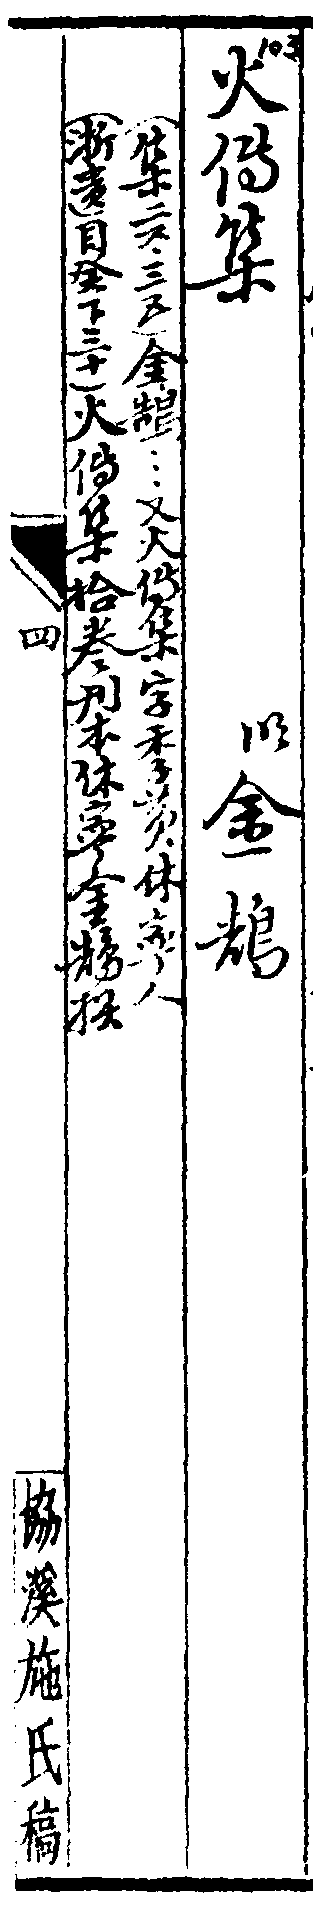 103
火傳集
明 金鵠
(集二六·三五)金鵠…又火傳集字季黃休寧人
(浙遺目癸下三十)火傳集拾卷刊本休寧金鵠撰
四
協溪施氏稿